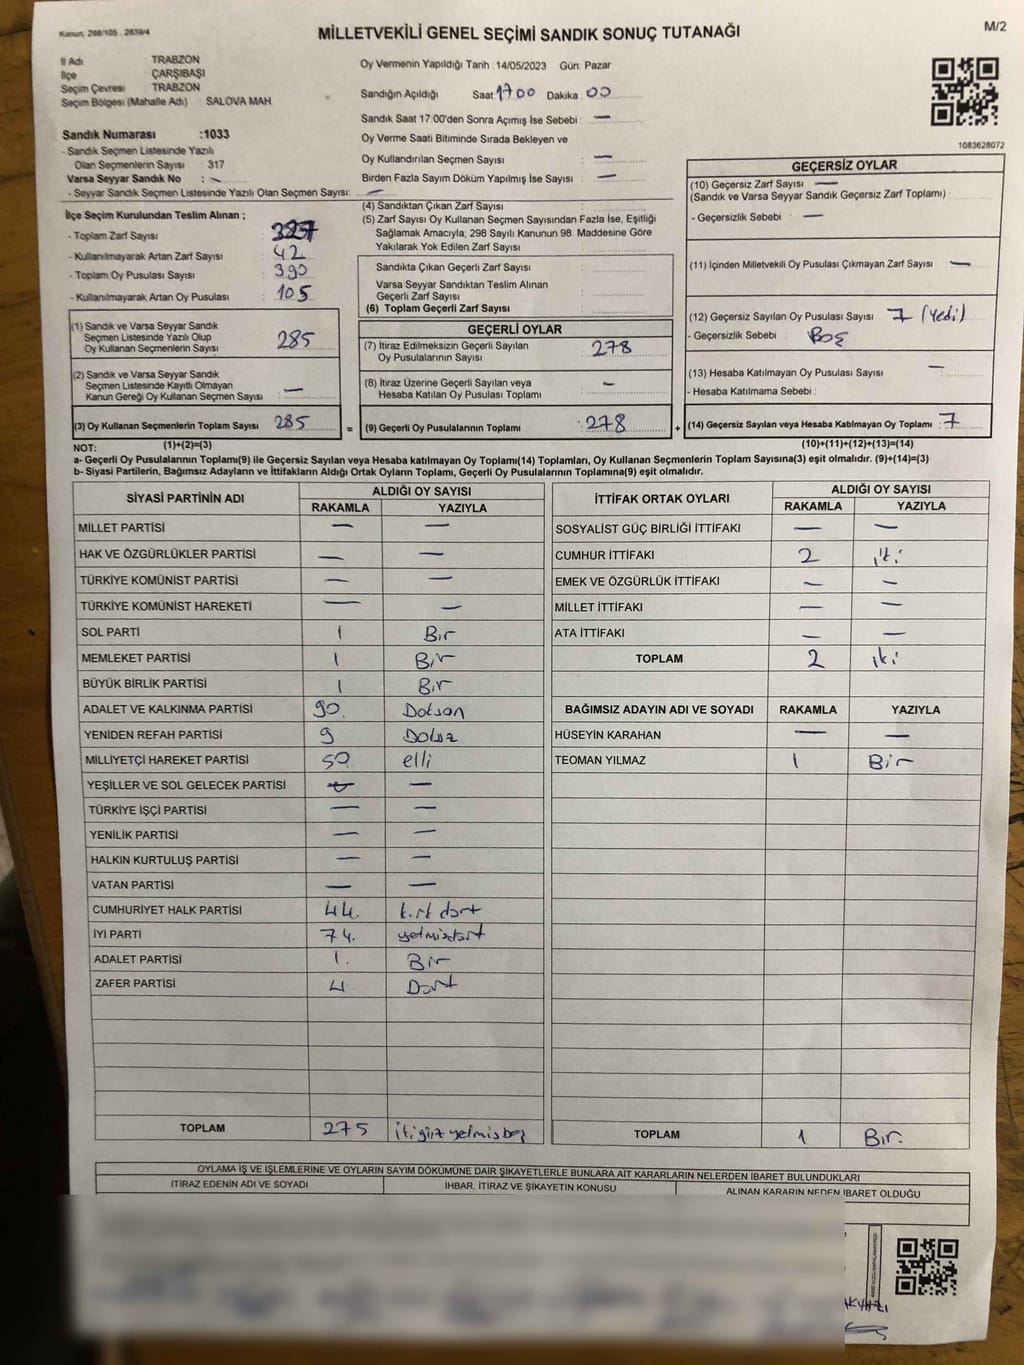 Kanun, 298/105 . 2839/4
MİLLETVEKİLİ GENEL SEÇİMİ SANDIK SONUÇ TUTANAĞI
M/2
İl Adı : TRABZON
İlçe : ÇARŞIBAŞI
Seçim Çevresi : TRABZON
Seçim Bölgesi (Mahalle Adı) : SALOVA MAH
Oy Vermenin Yapıldığı Tarih :14/05/2023 Gün: Pazar
Sandığın Açıldığı Saat 17 00 Dakika 00
Sandık Saat 17:00'den Sonra Açımış İse Sebebi : —
Oy Verme Saati Bitiminde Sırada Bekleyen ve
Oy Kullandırılan Seçmen Sayısı : —
Birden Fazla Sayım Döküm Yapılmış İse Sayısı : —
1083628072
Sandık Numarası :1033
- Sandık Seçmen Listesinde Yazılı
Olan Seçmenlerin Sayısı : 317
Varsa Seyyar Sandık No : —
- Seyyar Sandık Seçmen Listesinde Yazılı Olan Seçmen Sayısı: —
İlçe Seçim Kurulundan Teslim Alınan ;
- Toplam Zarf Sayısı : 327
- Kullanılmayarak Artan Zarf Sayısı : 42
- Toplam Oy Pusulası Sayısı : 390
- Kullanılmayarak Artan Oy Pusulası : 105
(1) Sandık ve Varsa Seyyar Sandık
Seçmen Listesinde Yazılı Olup
Oy Kullanan Seçmenlerin Sayısı : 285
(2) Sandık ve Varsa Seyyar Sandık
Seçmen Listesinde Kayıtlı Olmayan
Kanun Gereği Oy Kullanan Seçmen Sayısı : —
(3) Oy Kullanan Seçmenlerin Toplam Sayısı : 285
(1)+(2)=(3)
(4) Sandıktan Çıkan Zarf Sayısı :
(5) Zarf Sayısı Oy Kullanan Seçmen Sayısından Fazla İse, Eşitliği
Sağlamak Amacıyla; 298 Sayılı Kanunun 98. Maddesine Göre
Yakılarak Yok Edilen Zarf Sayısı :
Sandıkta Çıkan Geçerli Zarf Sayısı :
Varsa Seyyar Sandıktan Teslim Alınan
Geçerli Zarf Sayısı :
(6) Toplam Geçerli Zarf Sayısı :
GEÇERLİ OYLAR
(7) İtiraz Edilmeksizin Geçerli Sayılan
Oy Pusulalarının Sayısı : 278
(8) İtiraz Üzerine Geçerli Sayılan veya
Hesaba Katılan Oy Pusulası Toplamı : —
= (9) Geçerli Oy Pusulalarının Toplamı : 278
GEÇERSİZ OYLAR
(10) Geçersiz Zarf Sayısı : —
(Sandık ve Varsa Seyyar Sandık Geçersiz Zarf Toplamı) :
- Geçersizlik Sebebi : —
(11) İçinden Milletvekili Oy Pusulası Çıkmayan Zarf Sayısı : —
(12) Geçersiz Sayılan Oy Pusulası Sayısı : 7 (Yedi)
- Geçersizlik Sebebi : Boş
(13) Hesaba Katılmayan Oy Pusulası Sayısı : —
- Hesaba Katılmama Sebebi :
+ (14) Geçersiz Sayılan veya Hesaba Katılmayan Oy Toplamı : 7
(10)+(11)+(12)+(13)=(14)
NOT:
a- Geçerli Oy Pusulasının Toplamı(9) ile Geçersiz Sayılan veya Hesaba katılmayan Oy Toplamı(14) Toplamları, Oy Kullanan Seçmenlerin Toplam Sayısına(3) eşit olmalıdır. (9)+(14)=(3)
b- Siyasi Partilerin, Bağımsız Adayların ve İttifakların Aldığı Ortak Oyların Toplamı, Geçerli Oy Pusulalarının Toplamına(9) eşit olmalıdır.
SİYASİ PARTİNİN ADI ALDIĞI OY SAYISI
RAKAMLA YAZIYLA
MİLLET PARTİSİ — —
HAK VE ÖZGÜRLÜKLER PARTİSİ — —
TÜRKİYE KOMÜNİST PARTİSİ — —
TÜRKİYE KOMÜNİST HAREKETİ — —
SOL PARTİ 1 Bir
MEMLEKET PARTİSİ 1 Bir
BÜYÜK BİRLİK PARTİSİ 1 Bir
ADALET VE KALKINMA PARTİSİ 90. Doksan
YENİDEN REFAH PARTİSİ 9 Dokuz
MİLLİYETÇİ HAREKET PARTİSİ 50 elli
YEŞİLLER VE SOL GELECEK PARTİSİ — —
TÜRKİYE İŞÇİ PARTİSİ — —
YENİLİK PARTİSİ — —
HALKIN KURTULUŞ PARTİSİ — —
VATAN PARTİSİ — —
CUMHURİYET HALK PARTİSİ 44. kırk dört
İYİ PARTİ 74. yetmişdört
ADALET PARTİSİ 1. Bir
ZAFER PARTİSİ 4 Dört
TOPLAM 275 ikiyüz yetmişbeş
İTTİFAK ORTAK OYLARI ALDIĞI OY SAYISI
RAKAMLA YAZIYLA
SOSYALİST GÜÇ BİRLİĞİ İTTİFAKI — —
CUMHUR İTTİFAKI 2 iki
EMEK VE ÖZGÜRLÜK İTTİFAKI — —
MİLLET İTTİFAKI — —
ATA İTTİFAKI — —
TOPLAM 2 iki
BAĞIMSIZ ADAYIN ADI VE SOYADI RAKAMLA YAZIYLA
HÜSEYİN KARAHAN — —
TEOMAN YILMAZ 1 Bir
TOPLAM 1 Bir.
OYLAMA İŞ VE İŞLEMLERİNE VE OYLARIN SAYIM DÖKÜMÜNE DAİR ŞİKAYETLERLE BUNLARA AİT KARARLARIN NELERDEN İBARET BULUNDUKLARI
İTİRAZ EDENİN ADI VE SOYADI İHBAR, İTİRAZ VE ŞİKAYETİN KONUSU ALINAN KARARIN NEDEN İBARET OLDUĞU